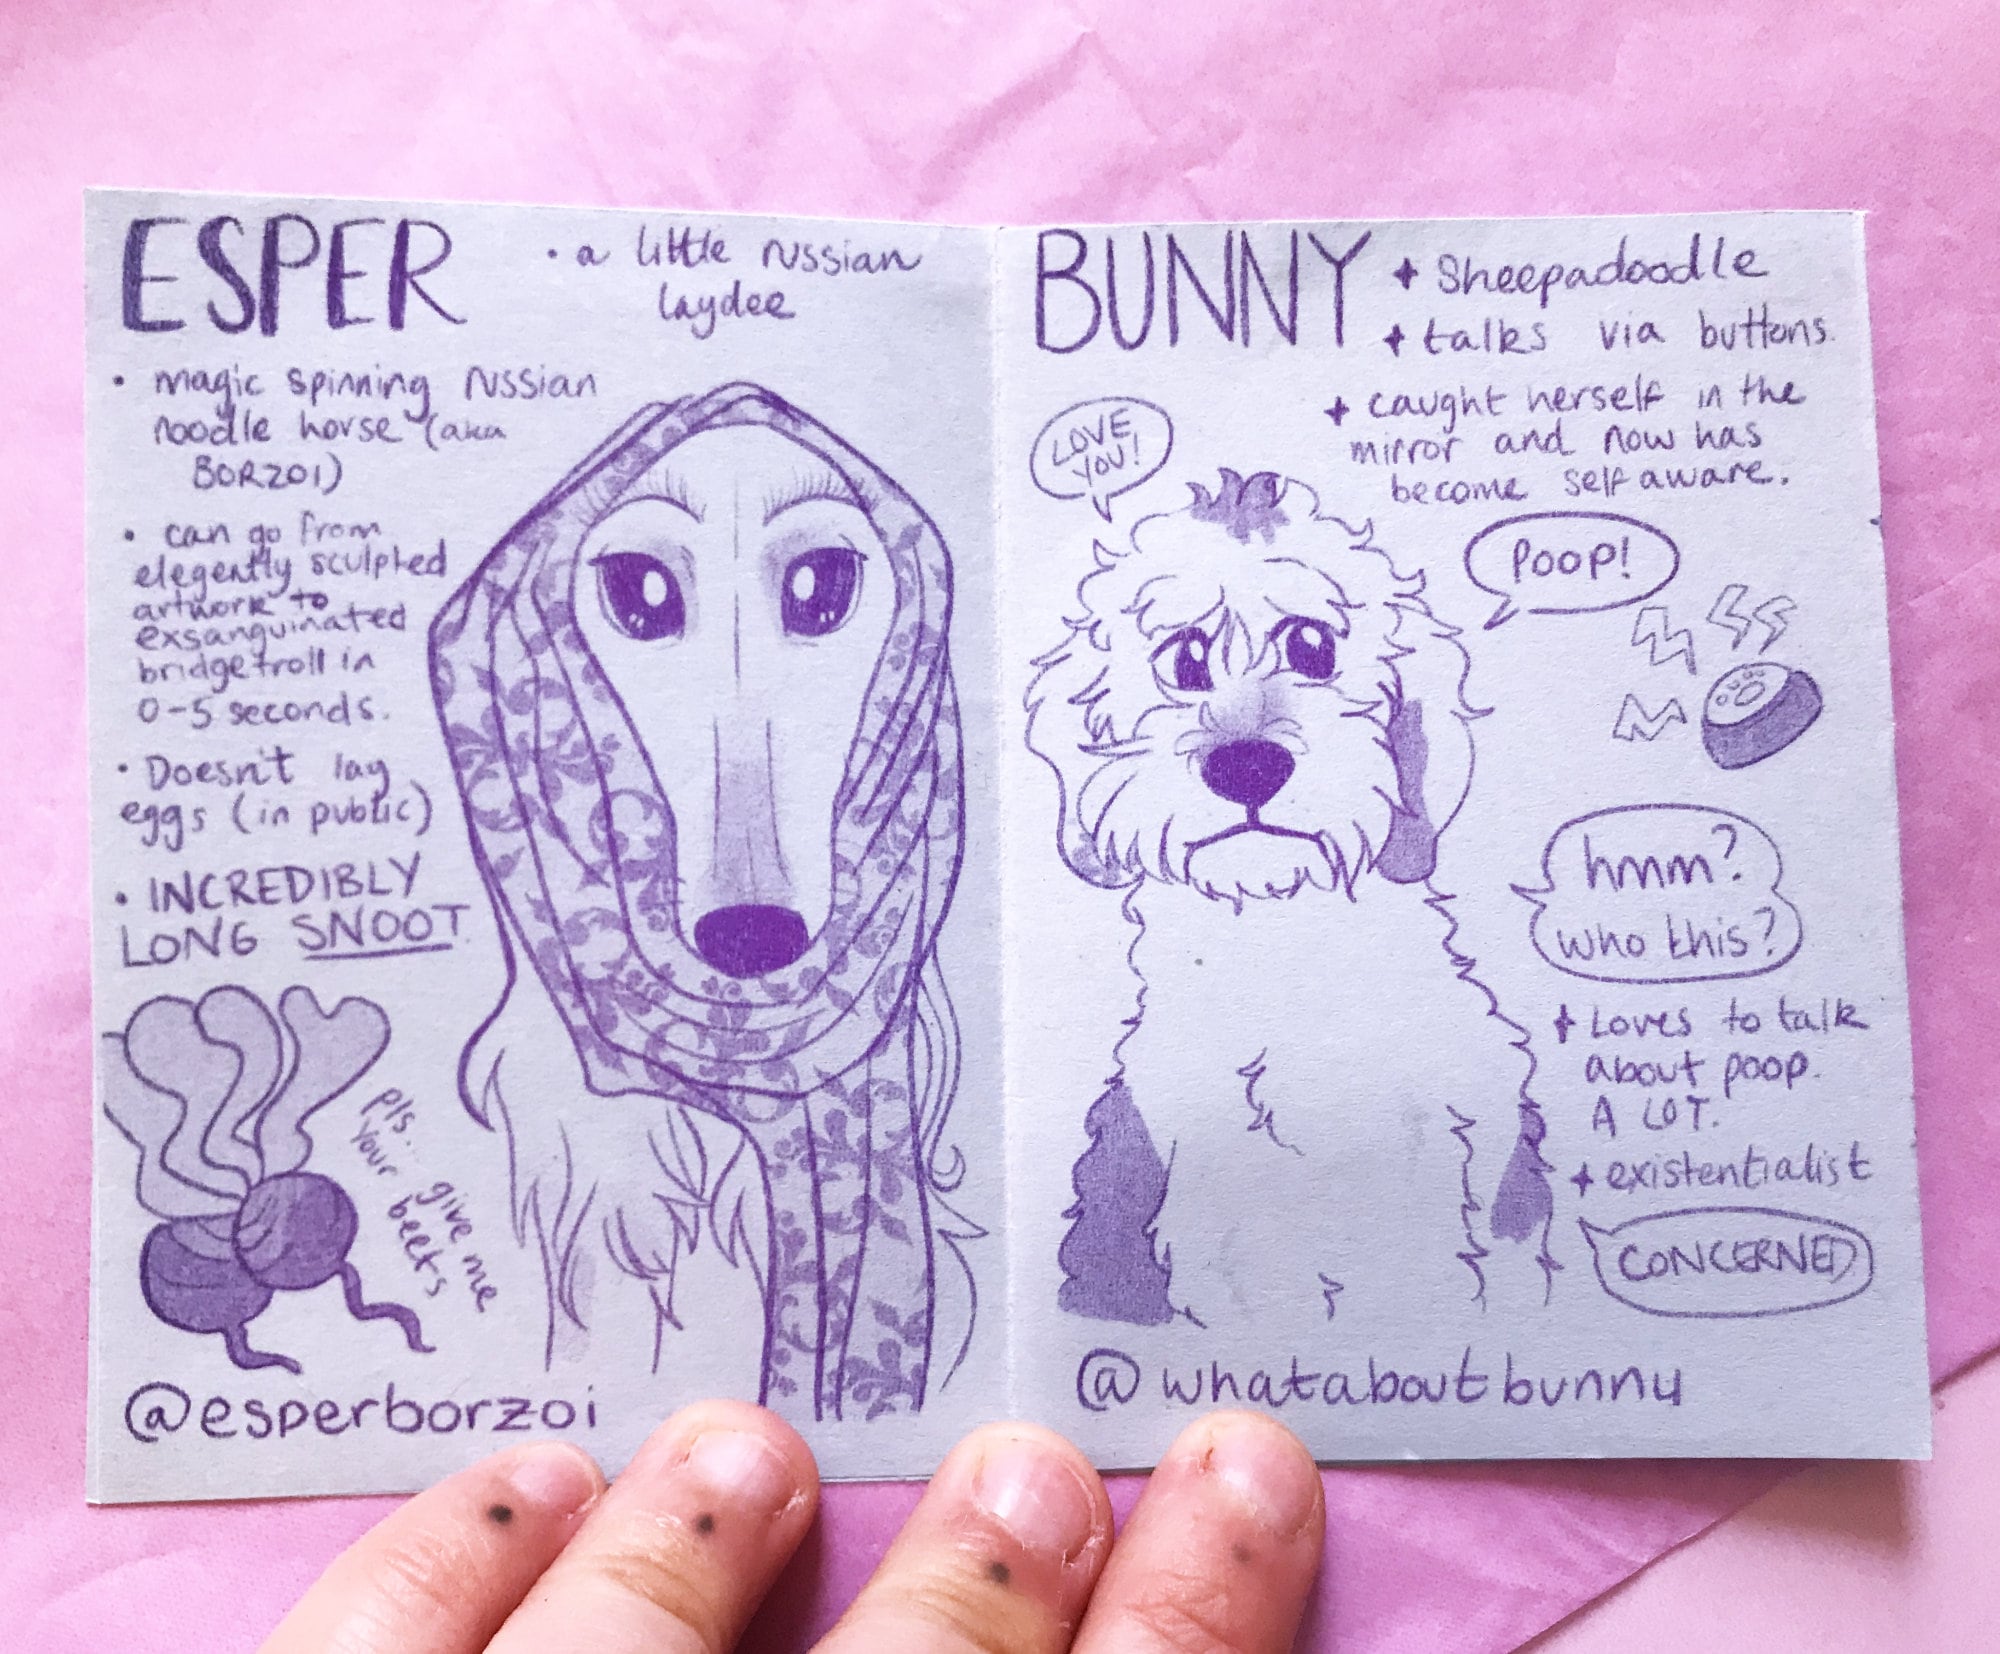 ESPER
• a little russian
laydee
• magic spinning russian
noodle horse (aka
BORZOI)
• can go from
elegently sculpted
artwork to
exsanguinated
bridgetroll in
0-5 seconds.
• Doesn't lay
eggs (in public)
• INCREDIBLY
LONG SNOOT.
pls... give me
your beets
@esperborzoi
BUNNY
+ Sheepadoodle
+ talks via buttons.
+ caught herself in the
mirror and now has
become self aware.
LOVE
YOU!
POOP!
hmm?
who this?
+ Loves to talk
about poop.
A LOT.
+ existentialist
CONCERNED
@whataboutbunny